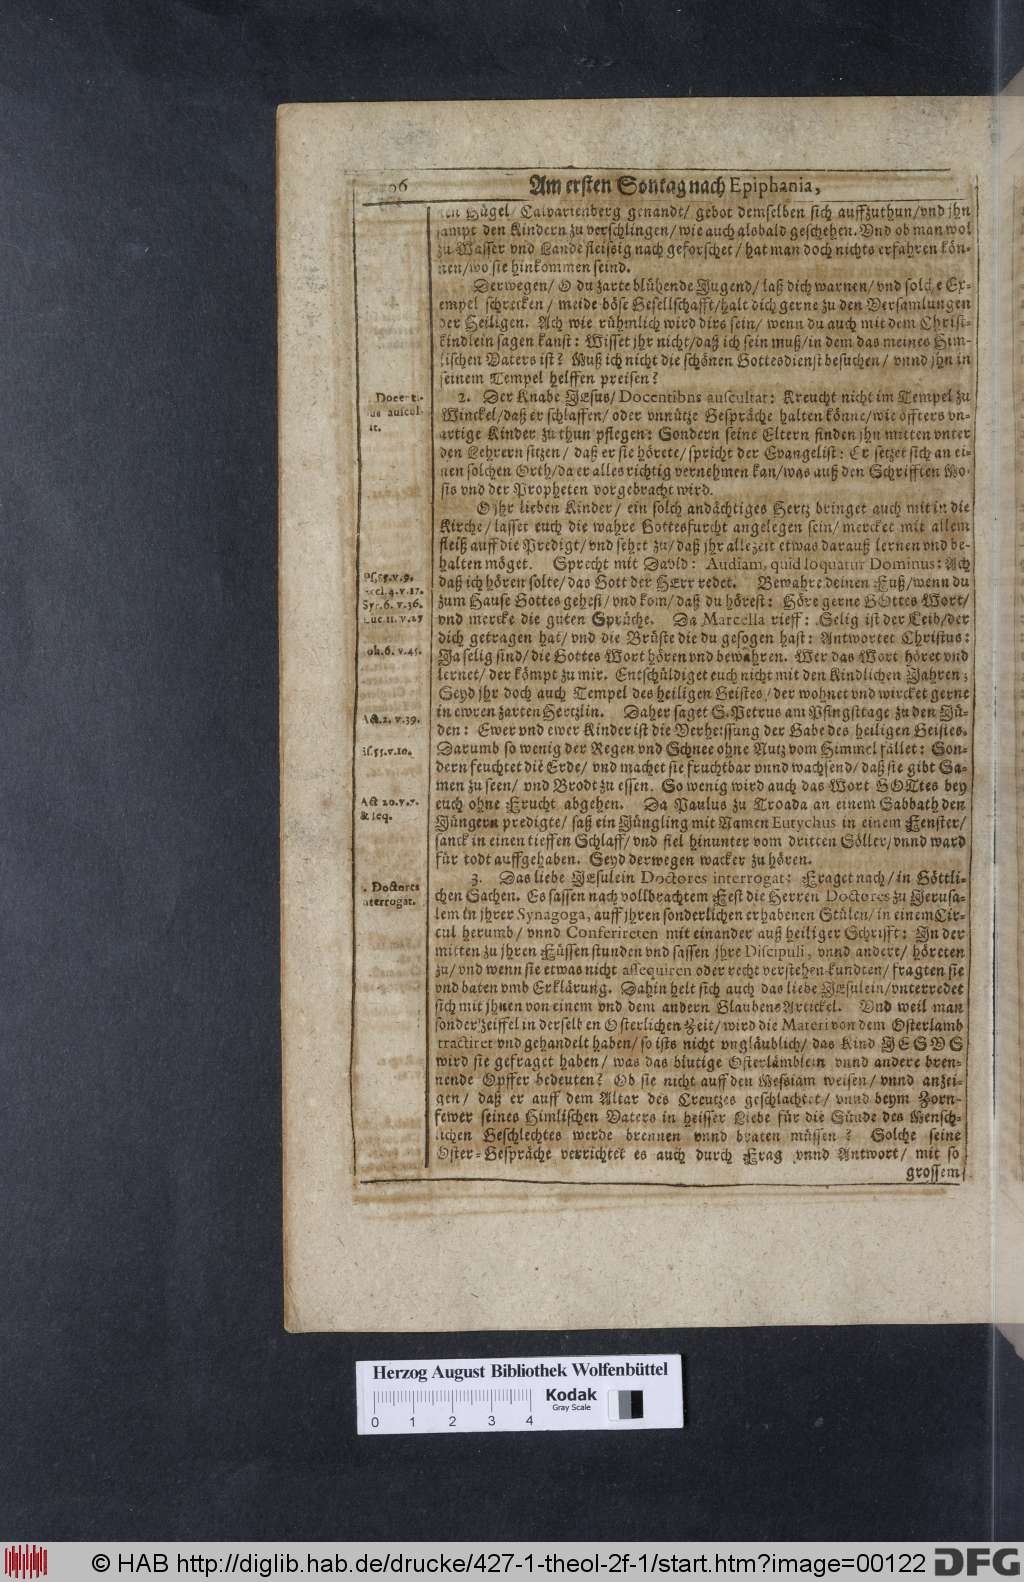 06 Am ersten Sontag nach Epiphania,
ten Hügel/ Calvarienberg genandt/ gebot demselben sich auffzuthun/vnd jhn
sampt den Kindern zu verschlingen/ wie auch alsbald geschehen. Vnd ob man wol
zu Wasser vnd Lande fleissig nach geforschet/ hat man doch nichts erfahren kön-
nen/wo sie hinkommen seind.
Derwegen/ O du zarte blühende Jugend/ laß dich warnen/ vnd solche Ex-
empel schrecken/ meide böse Gesellschafft/halt dich gerne zu den Versamlungen
der Heiligen. Ach wie rühmlich wird dirs sein/ wenn du auch mit dem Christ-
kindlein sagen kanst: Wisset jhr nicht/daß ich sein muß/in dem das meines Him-
lischen Vaters ist? Muß ich nicht die schönen Gottesdienst besuchen/ vnnd jhn in
seinem Tempel helffen preisen?
Docenti-
us auscul-
it.
2. Der Knabe JEsus/ Docentibus auscultat: Kreucht nicht im Tempel zu
Winckel/daß er schlaffen/ oder vnnütze Gespräche halten könne/wie öffters vn-
artige Kinder zu thun pflegen: Sondern seine Eltern finden jhn mitten vnter
den Lehrern sitzen/ daß er sie hörete/ spricht der Evangelist: Er setzet sich an ei-
nen solchen Orth/da er alles richtig vernehmen kan/was auß den Schrifften Mo-
sis vnd der Propheten vorgebracht wird.
O jhr lieben Kinder/ ein solch andächtiges Hertz bringet auch mit in die
Kirche/ lasset euch die wahre Gottesfurcht angelegen sein/ mercket mit allem
fleiß auff die Predigt/ vnd sehet zu/ daß jhr allezeit etwas darauß lernen vnd be-
halten möget. Sprecht mit David: Audiam, quid loquatur Dominus: Ach
Ps. 85. v. 9.
daß ich hören solte/das Gott der HErr redet. Bewahre deinen Fuß/wenn du
Eccl. 4. v. 17.
zum Hause Gottes gehest/ vnd kom/ daß du hörest: Höre gerne GOttes Wort/
Syr. 6. v. 36.
Luc. 11. v. 27
vnd mercke die guten Sprüche. Da Marcella rieff: Selig ist der Leib/der
dich getragen hat/ vnd die Brüste die du gesogen hast: Antwortet Christus:
Joh. 6. v. 45.
Ja selig sind/ die Gottes Wort hören vnd bewahren. Wer das Wort höret vnd
lernet/ der kömpt zu mir. Entschüldiget euch nicht mit den Kindlichen Jahren;
Seyd jhr doch auch Tempel des heiligen Geistes/ der wohnet vnd wircket gerne
in ewren zarten Hertzlin. Daher saget S. Petrus am Pfingsttage zu den Jü-
Act. 2. v. 39.
den: Ewer vnd ewer Kinder ist die Verheissung der Gabe des heiligen Geistes.
Es. 55. v. 10.
Darumb so wenig der Regen vnd Schnee ohne Nutz vom Himmel fället: Son-
dern feuchtet die Erde/ vnd machet sie fruchtbar vnnd wachsend/ daß sie gibt Sa-
men zu seen/ vnd Brodt zu essen. So wenig wird auch das Wort GOTtes bey
Act 20. v. v.
& seq.
euch ohne Frucht abgehen. Da Paulus zu Troada an einem Sabbath den
Jüngern predigte/ saß ein Jüngling mit Namen Eutychus in einem Fenster/
sanck in einen tieffen Schlaff/ vnd fiel hinunter vom dritten Söller/ vnnd ward
für todt auffgehaben. Seyd derwegen wacker zu hören.
. Doctores
nterrogat.
3. Das liebe JEsulein Doctores interrogat: Fraget nach/ in Göttli-
chen Sachen. Es sassen nach vollbrachtem Fest die Herren Doctores zu Jerusa-
lem in jhrer Synagoga, auff jhren sonderlichen erhabenen Stülen/ in einem Cir-
cul herumb/ vnnd Conferireten mit einander auß heiliger Schrifft: In der
mitten zu jhren Füssen stunden vnd sassen jhre Discipuli, vnnd andere/ höreten
zu/ vnd wenn sie etwas nicht assequiren oder recht verstehen kundten/ fragten sie
vnd baten vmb Erklärung. Dahin helt sich auch das liebe JEsulein/ vnterredet
sich mit jhnen von einem vnd dem andern Glaubens Artickel. Vnd weil man
sonder zeiffel in derselben Osterlichen Zeit/ wird die Materi von dem Osterlamb
tractiret vnd gehandelt haben/ so ists nicht vngläublich/ das Kind JESVS
wird sie gefraget haben/ was das blutige Osterlämblein vnnd andere bren-
nende Opffer bedeuten? Ob sie nicht auff den Messiam weisen/ vnnd anzei-
gen/ daß er auff dem Altar des Creutzes geschlachtet/ vnnd beym Zorn-
fewer seines Himlischen Vaters in heisser Liebe für die Sünde des Mensch-
lichen Geschlechtes werde brennen vnnd braten müssen? Solche seine
Oster-Gespräche verrichtet es auch durch Frag vnnd Antwort/ mit so
grossem
Herzog August Bibliothek Wolfenbüttel
0 1 2 3 4
Kodak
Gray Scale
© HAB http://diglib.hab.de/drucke/427-1-theol-2f-1/start.htm?image=00122
DFG